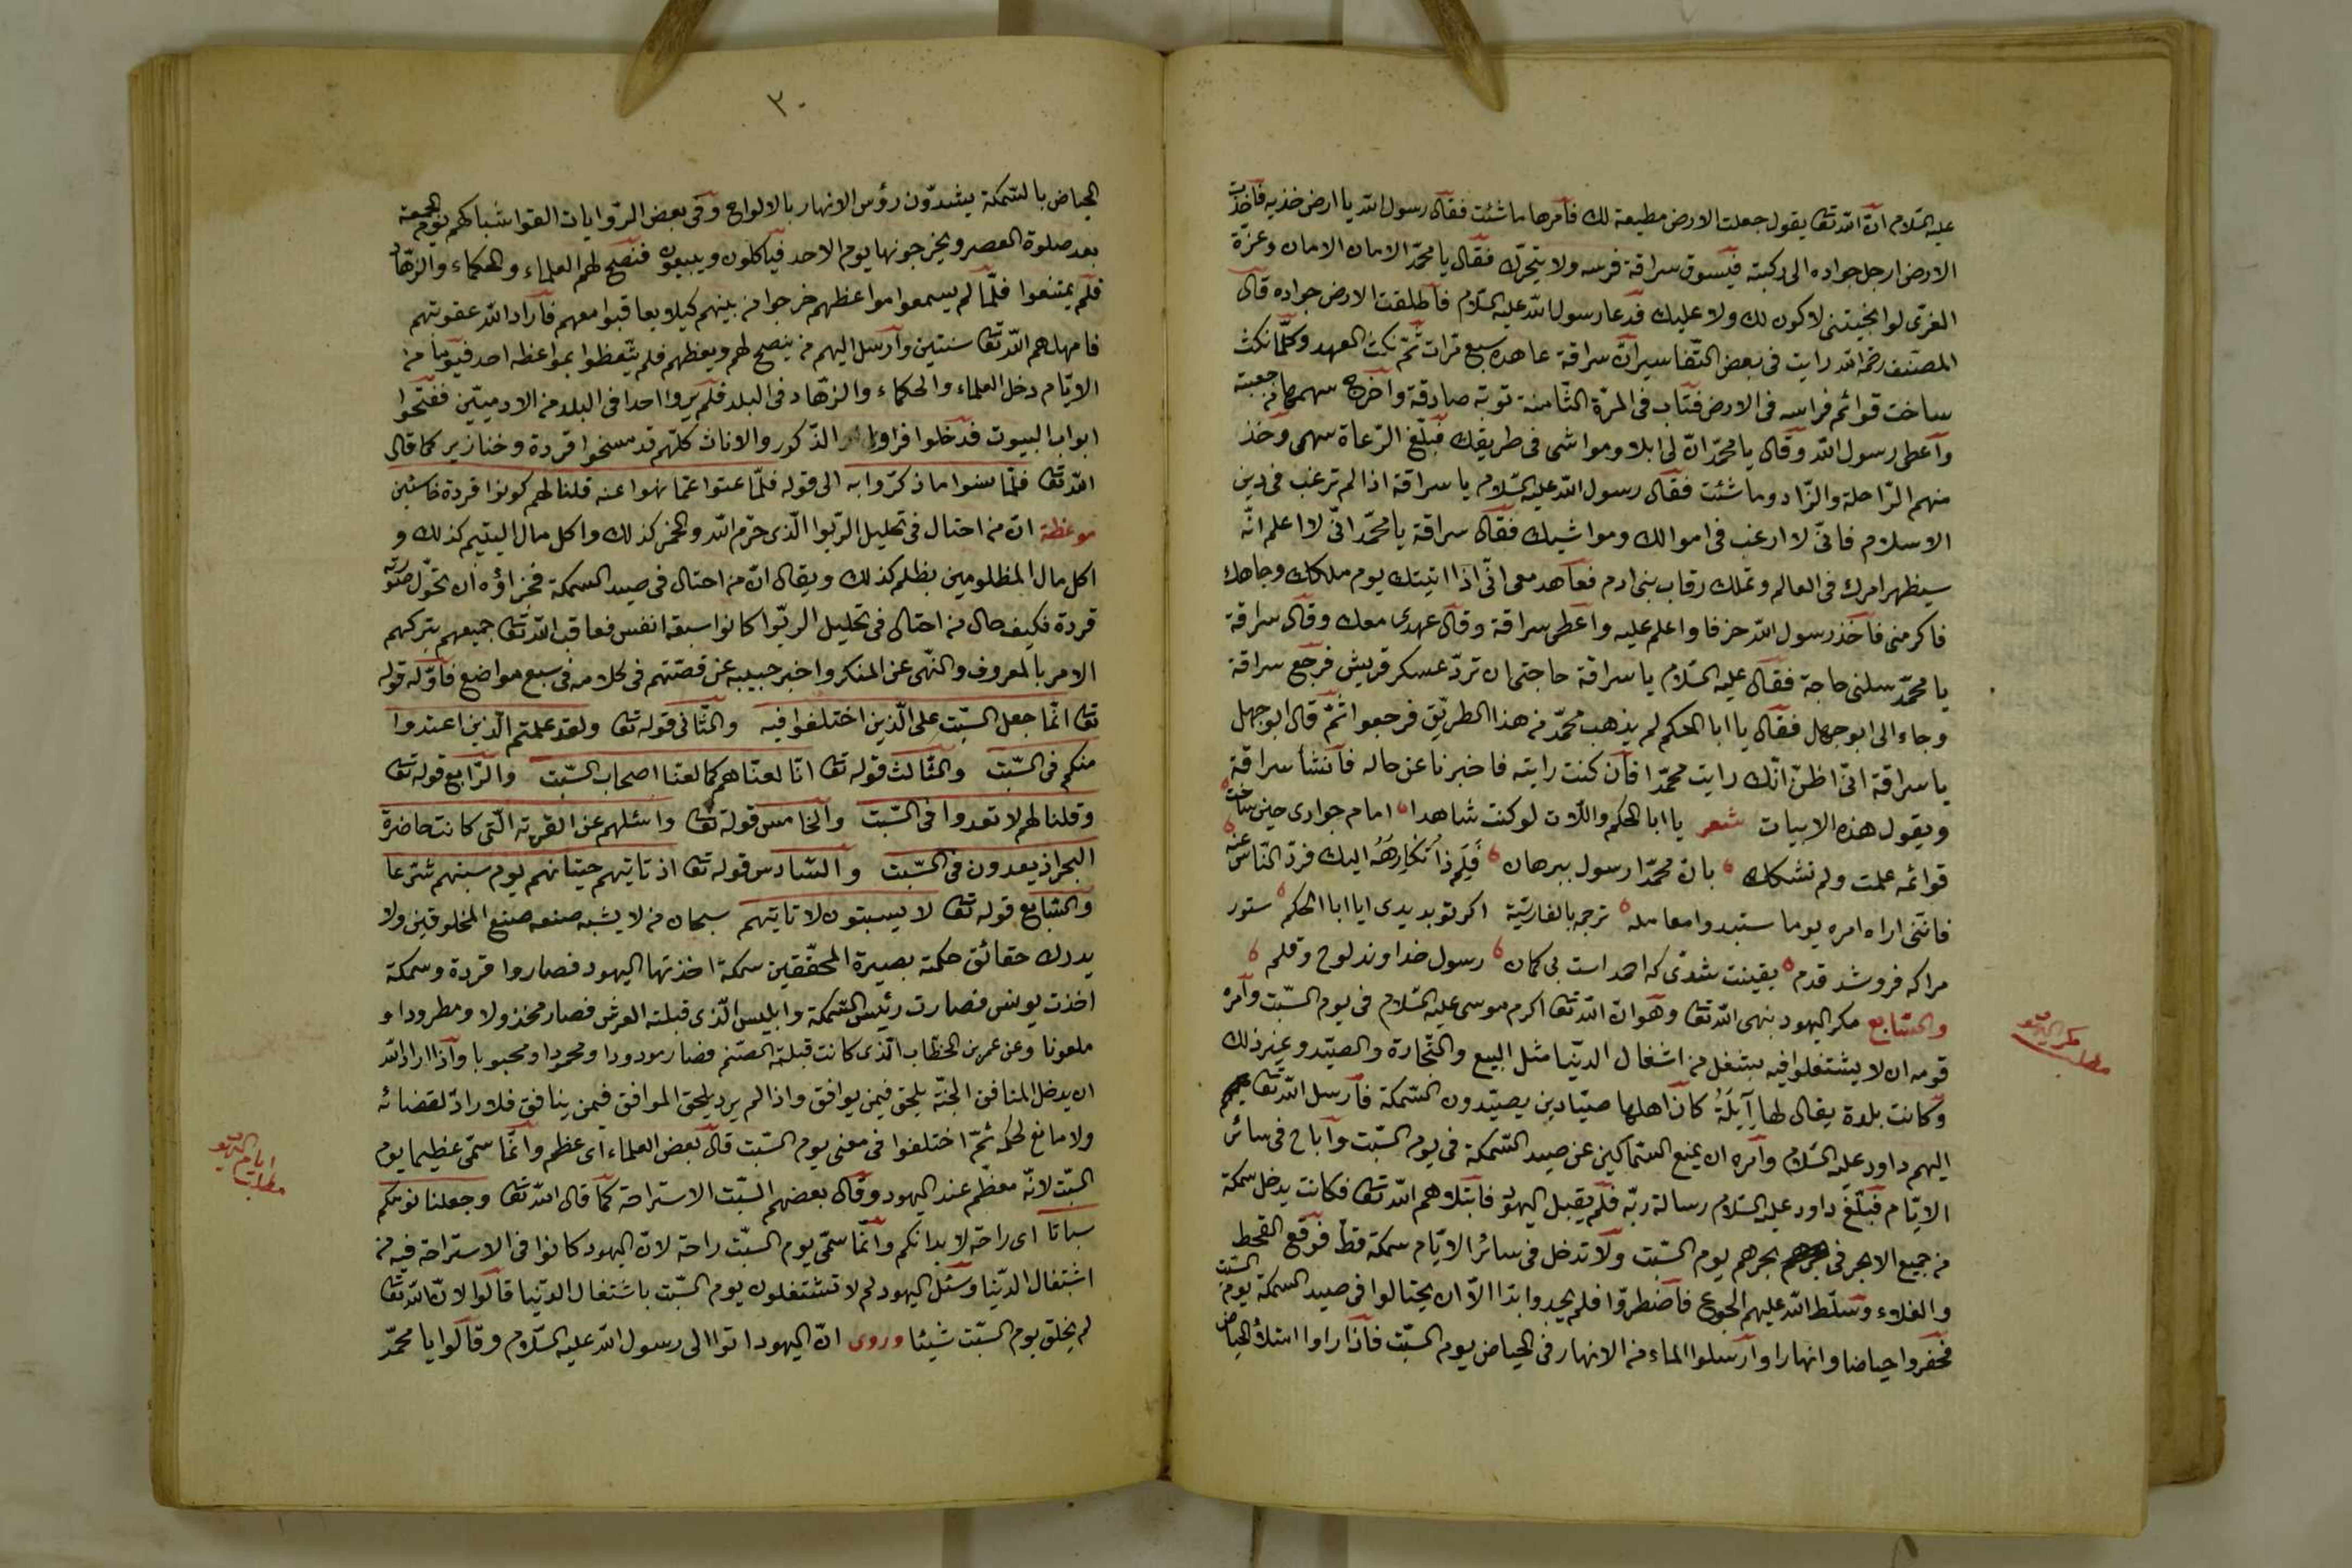 عليه السلام ان الله تعا يقول جعلت الارض مطيعة لك فأمرها ما شئت فقال رسول الله يا ارض خذيه فاخذت
الارض ارجل جواده الى ركبته فيسوق سراقة فرسه ولا يتحرك فقال يا محمد الامان الامان وعزة
العزى لو انجيتنى لاكون لك ولا عليك فدعا رسول الله عليه السلام فاطلقت الارض جواده قال
المصنف رحمه الله رايت فى بعض التفاسير ان سراقة عاهد سبع مرات ثم نكث العهد وكلما نكث
ساخت قوائم فراسه فى الارض فتاب فى المرة الثامنة توبة صادقة واخرج سهما من جعبته
واعطى رسول الله وقال يا محمد ان لى ابلا ومواشى فى طريقك فبلغ الرعاة سهمى وخذ
منهم الراحلة والزاد وما شئت فقال رسول الله عليه السلام يا سراقة اذا لم ترغب فى دين
الاسلام فانى لا ارغب فى اموالك ومواشيك فقال سراقة يا محمد انى لا اعلم انه
سيظهر امرك فى العالم وتملك رقاب بنى ادم فعاهد معى انى اذا اتيتك يوم ملكك وجاهك
فاكرمنى فاخذ رسول الله خزفا واعلم عليه واعطى سراقة وقال عهدى معك وقال سراقة
يا محمد سلنى حاجة فقال عليه السلام يا سراقة حاجتى ان ترد عسكر قريش فرجع سراقة
وجاء الى ابو جهل فقال يا ابا الحكم لم يذهب محمد من هذا الطريق فرجعوا ثم قال ابو جهل
يا سراقة انى اظن انك رايت محمدا فان كنت رايته فاخبرنا عن حاله فانشأ سراقة
ويقول هذه الابيات شعر يا ابا الحكم واللات لو كنت شاهدا امام جوادى حين ساخت
قوائمه علمت ولم تشكك بان محمدا رسول ببرهان اليك فرد الناس عنه
فاننى اراه امره يوما ستبدوا معامله ترجمه بالفارسية اكر تو بديدى ايا ابا الحكم ستور
مرا كه فرو شد قدم يقينت شدى كه احمد است بى كمان رسول خداوند لوح وقلم
والسابع مكر اليهود بنهى الله تعا وهو ان الله تعا اكرم موسى عليه السلام فى يوم السبت وامره
قومه ان لا يشتغلوا فيه بشغل من اشغال الدنيا مثل البيع والتجارة والصيد وغير ذلك
وكانت بلدة يقال لها آيلة كان اهلها صيادين يصيدون السمكة فارسل الله تعا
اليهم داود عليه السلام وامره ان يمنع السماكين عن صيد السمكة فى يوم السبت واباح فى سائر
الايام فبلغ داود عليه السلام رسالة ربه فلم يقبل اليهود فابتلاهم الله تعا فكانت يدخل سمكة
من جميع الابحر فى بحرهم يوم السبت ولا تدخل فى سائر الايام سمكة قط فوقع القحط
والغلاء وسلط الله عليهم الجوع فاضطروا فلم يجدوا بدا الا ان يحتالوا فى صيد السمكة يوم السبت
فحفروا حياضا وانهارا وارسلوا الماء من الانهار فى الحياض يوم السبت فاذا راوا امتلأ الحياض
مكر اليهود
مطلب
٣٠
الحياض بالسمكة يشدون رؤس الانهار بالالواح وفى بعض الروايات القوا شباكهم يوم الجمعة
بعد صلوة العصر ويخرجونها يوم الاحد فيأكلون ويبيعون فنصح لهم العلماء والحكماء والزهاد
فلم يمتنعوا فلما لم يسمعوا مواعظهم خرجوا من بينهم كيلا يعاقبوا معهم فاراد الله عقوبتهم
فامهلهم الله تعا سنتين وارسل اليهم من ينصح لهم ويعظهم فلم يتعظوا بمواعظه احد فيوما من
الايام دخل العلماء والحكماء والزهاد فى البلد فلم يروا احدا فى البلد من الادميين ففتحوا
ابواب البيوت فدخلوا فراوا الذكور والاناث كلهم قد مسخوا قردة وخنازير كما قال
الله تعا فلما نسوا ما ذكروا به الى قوله فلما عتوا عما نهوا عنه قلنا لهم كونوا قردة خاسئين
موعظة ان من احتال فى تحليل الربوا الذى حرم الله والخمر كذلك واكل مال اليتيم كذلك و
اكل مال المظلومين بظلم كذلك ويقال ان من احتال فى صيد السمكة فجزاؤه ان تحول صورته
قردة فكيف حال من احتال فى تحليل الربوا كانوا سبعة انفس فعاقب الله تعا جميعهم بتركهم
الامر بالمعروف والنهى عن المنكر واخبر حبيبه عن قصتهم فى كلامه فى سبع مواضع فاوله قوله
تعا انما جعل السبت على الذين اختلفوا فيه والثانى قوله تعا ولقد علمتم الذين اعتدوا
منكم فى السبت والثالث قوله تعا انا لعناهم كما لعنا اصحاب السبت والرابع قوله تعا
وقلنا لهم لا تعدوا فى السبت والخامس قوله تعا واسئلهم عن القرية التى كانت حاضرة
البحر اذ يعدون فى السبت والسادس قوله تعا اذ تاتيهم حيتانهم يوم سبتهم شرعا
والسابع قوله تعا لا يسبتون لا تاتيهم سبحان من لا يشبه صنعه صنع المخلوقين ولا
يدرك حقائق حكمته بصيرة المحققين سمكة اخذتها اليهود فصاروا قردة وسمكة
اخذت يونس فصارت رئيس السمكة وابليس الذى قبلته العرش فصار مخذولا ومطرودا و
ملعونا وعن عمر بن الخطاب الذى كانت قبلته الصنم فصار مودودا ومحمودا ومحبوبا واذا اراد الله
ان يدخل المنافق الجنة يلحق فيمن يوافق واذا لم يرد يلحق الموافق فيمن ينافق فلا راد لقضائه
ولا مانع لحكمه ثم اختلفوا فى معنى يوم السبت قال بعض العلماء اى عظم وانما سمى عظيما يوم
السبت لانه معظم عند اليهود وقال بعضهم السبت الاستراحة كما قال الله تعا وجعلنا نومكم
سباتا اى راحة لابدانكم وانما سمى يوم السبت راحة لان اليهود كانوا فى الاستراحة فيه من
اشتغال الدنيا وسئل اليهود لم لا تشتغلون يوم السبت باشتغال الدنيا قالوا لان الله تعا
لم يخلق يوم السبت شيئا وروى ان اليهود اتوا الى رسول الله عليه السلام وقالوا يا محمد
ايام اليهود
مطلب